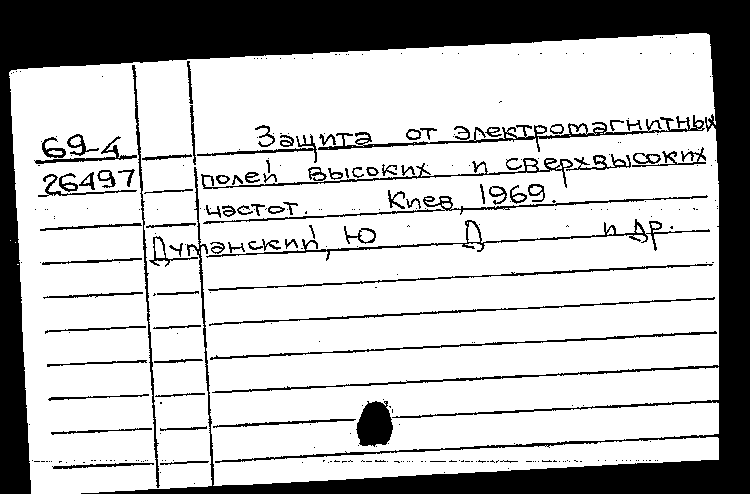 69-4 Защита от электромагнитных
26497 полей высоких и сверхвысоких
частот. Киев, 1969.
Думанский, Ю Д и др.